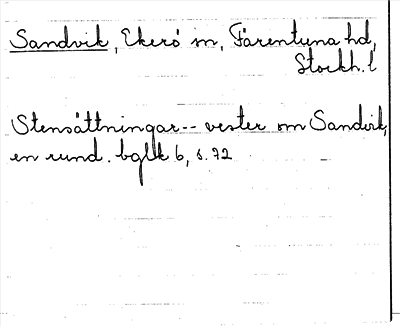 Sandvik, Ekerö sn, Färentuna hd,
Stockh. l
Stensättningar -- vester om Sandvik,
en rund. bglk 6, s. 72